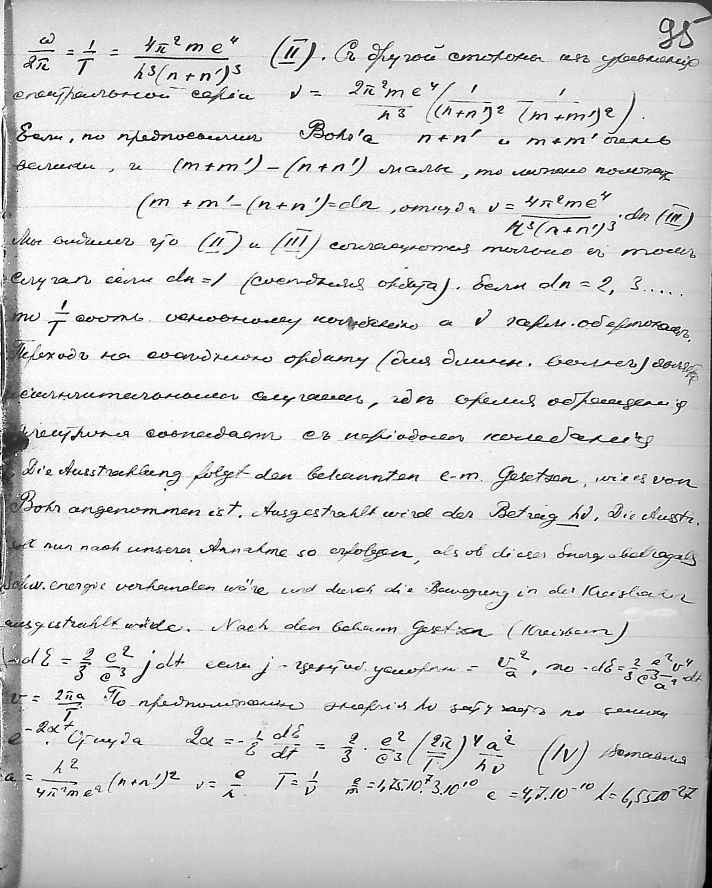 95
ω/2π = 1/T = 4π²me⁴/h³(n+n')³ (II). Съ другой стороны изъ уравненія
спектральной серіи ν = 2π²me⁴/h³ (1/(n+n')² 1/(m+m')²).
Если, по предположенію Bohr'а n+n' и m+m' очень
велики, и (m+m') – (n+n') малы, то можно положить
(m+m' – (n+n') = dn, откуда ν = 4π²me⁴/h³(n+n')³ · dn (III)
Мы видимъ что (II) и (III) согласуются только въ томъ
случаѣ если dn = 1 (сосѣдняя орбита). Если dn = 2, 3.....
то 1/T соотв. основному колебанію а ν гарм. обертонамъ.
Переходъ на сосѣднюю орбиту (для длинн. волнъ)
исключительнымъ случаемъ, гдѣ время обращенія
электрона совпадаетъ съ періодомъ колебанія
Die Ausstrahlung folgt den bekannten e-m. Gesetzen, wie es von
Bohr angenommen ist. Ausgestrahlt wird der Betrag hν. Die Ausstr.
soll nun nach unserer Annahme so erfolgen, als ob dieser Energiebetrag als
schw. energie vorhanden wäre und durch die Bewegung in der Kreisbahn
ausgestrahlt würde. Nach den bekann Gesetzen (Kreisbahn)
-dE = 2/3 e²/c³ j dt если j - центроб. ускорен = v²/a, то -dE = 2/3 e²/c³ v⁴/a² dt
v = 2πa/T. По предположенію энергія hν затухаетъ по закону
e^-2αt. Откуда 2α = -1/E dE/dt = 2/3 · e²/c³ (2π/T)⁴ a²/hν (IV) вставляя
a = h²/4π²me² (n+n')² ν = c/λ T = 1/ν e/m = 1,75.10⁷.3.10¹⁰ e = 4,7.10⁻¹⁰ h = 6,55.10⁻²⁷